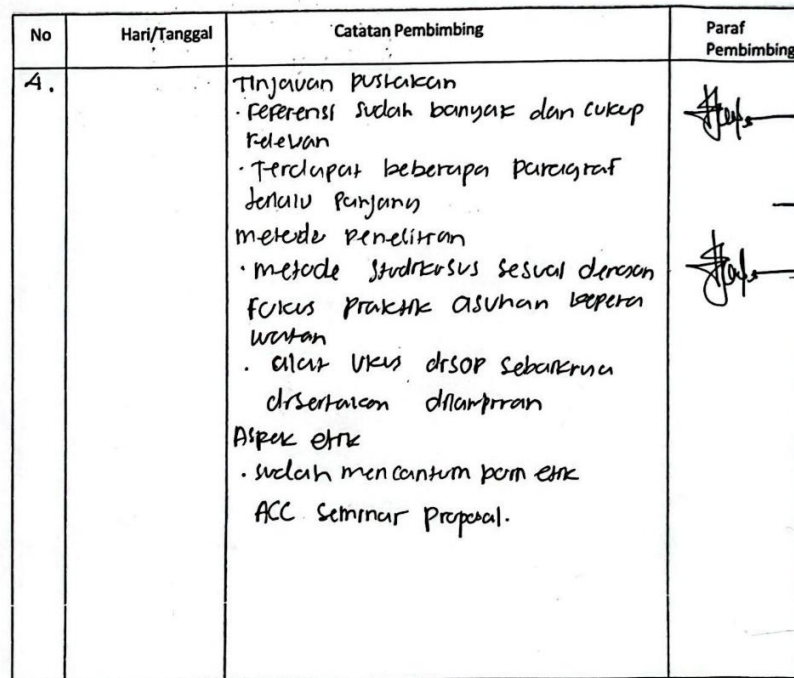 No Hari/Tanggal Catatan Pembimbing Paraf Pembimbing
4.
Tinjauan pustakan
· referensi sudah banyak dan cukup
relevan
· Terdapat beberapa paragraf
terlalu panjang
metode penelitian
· metode studi kasus sesuai dengan
fokus praktik asuhan kepera
watan
· alat ukur disop sebaiknya
disertakan dilampiran
Aspek etik
· sudah mencantum etik
ACC Seminar Proposal.